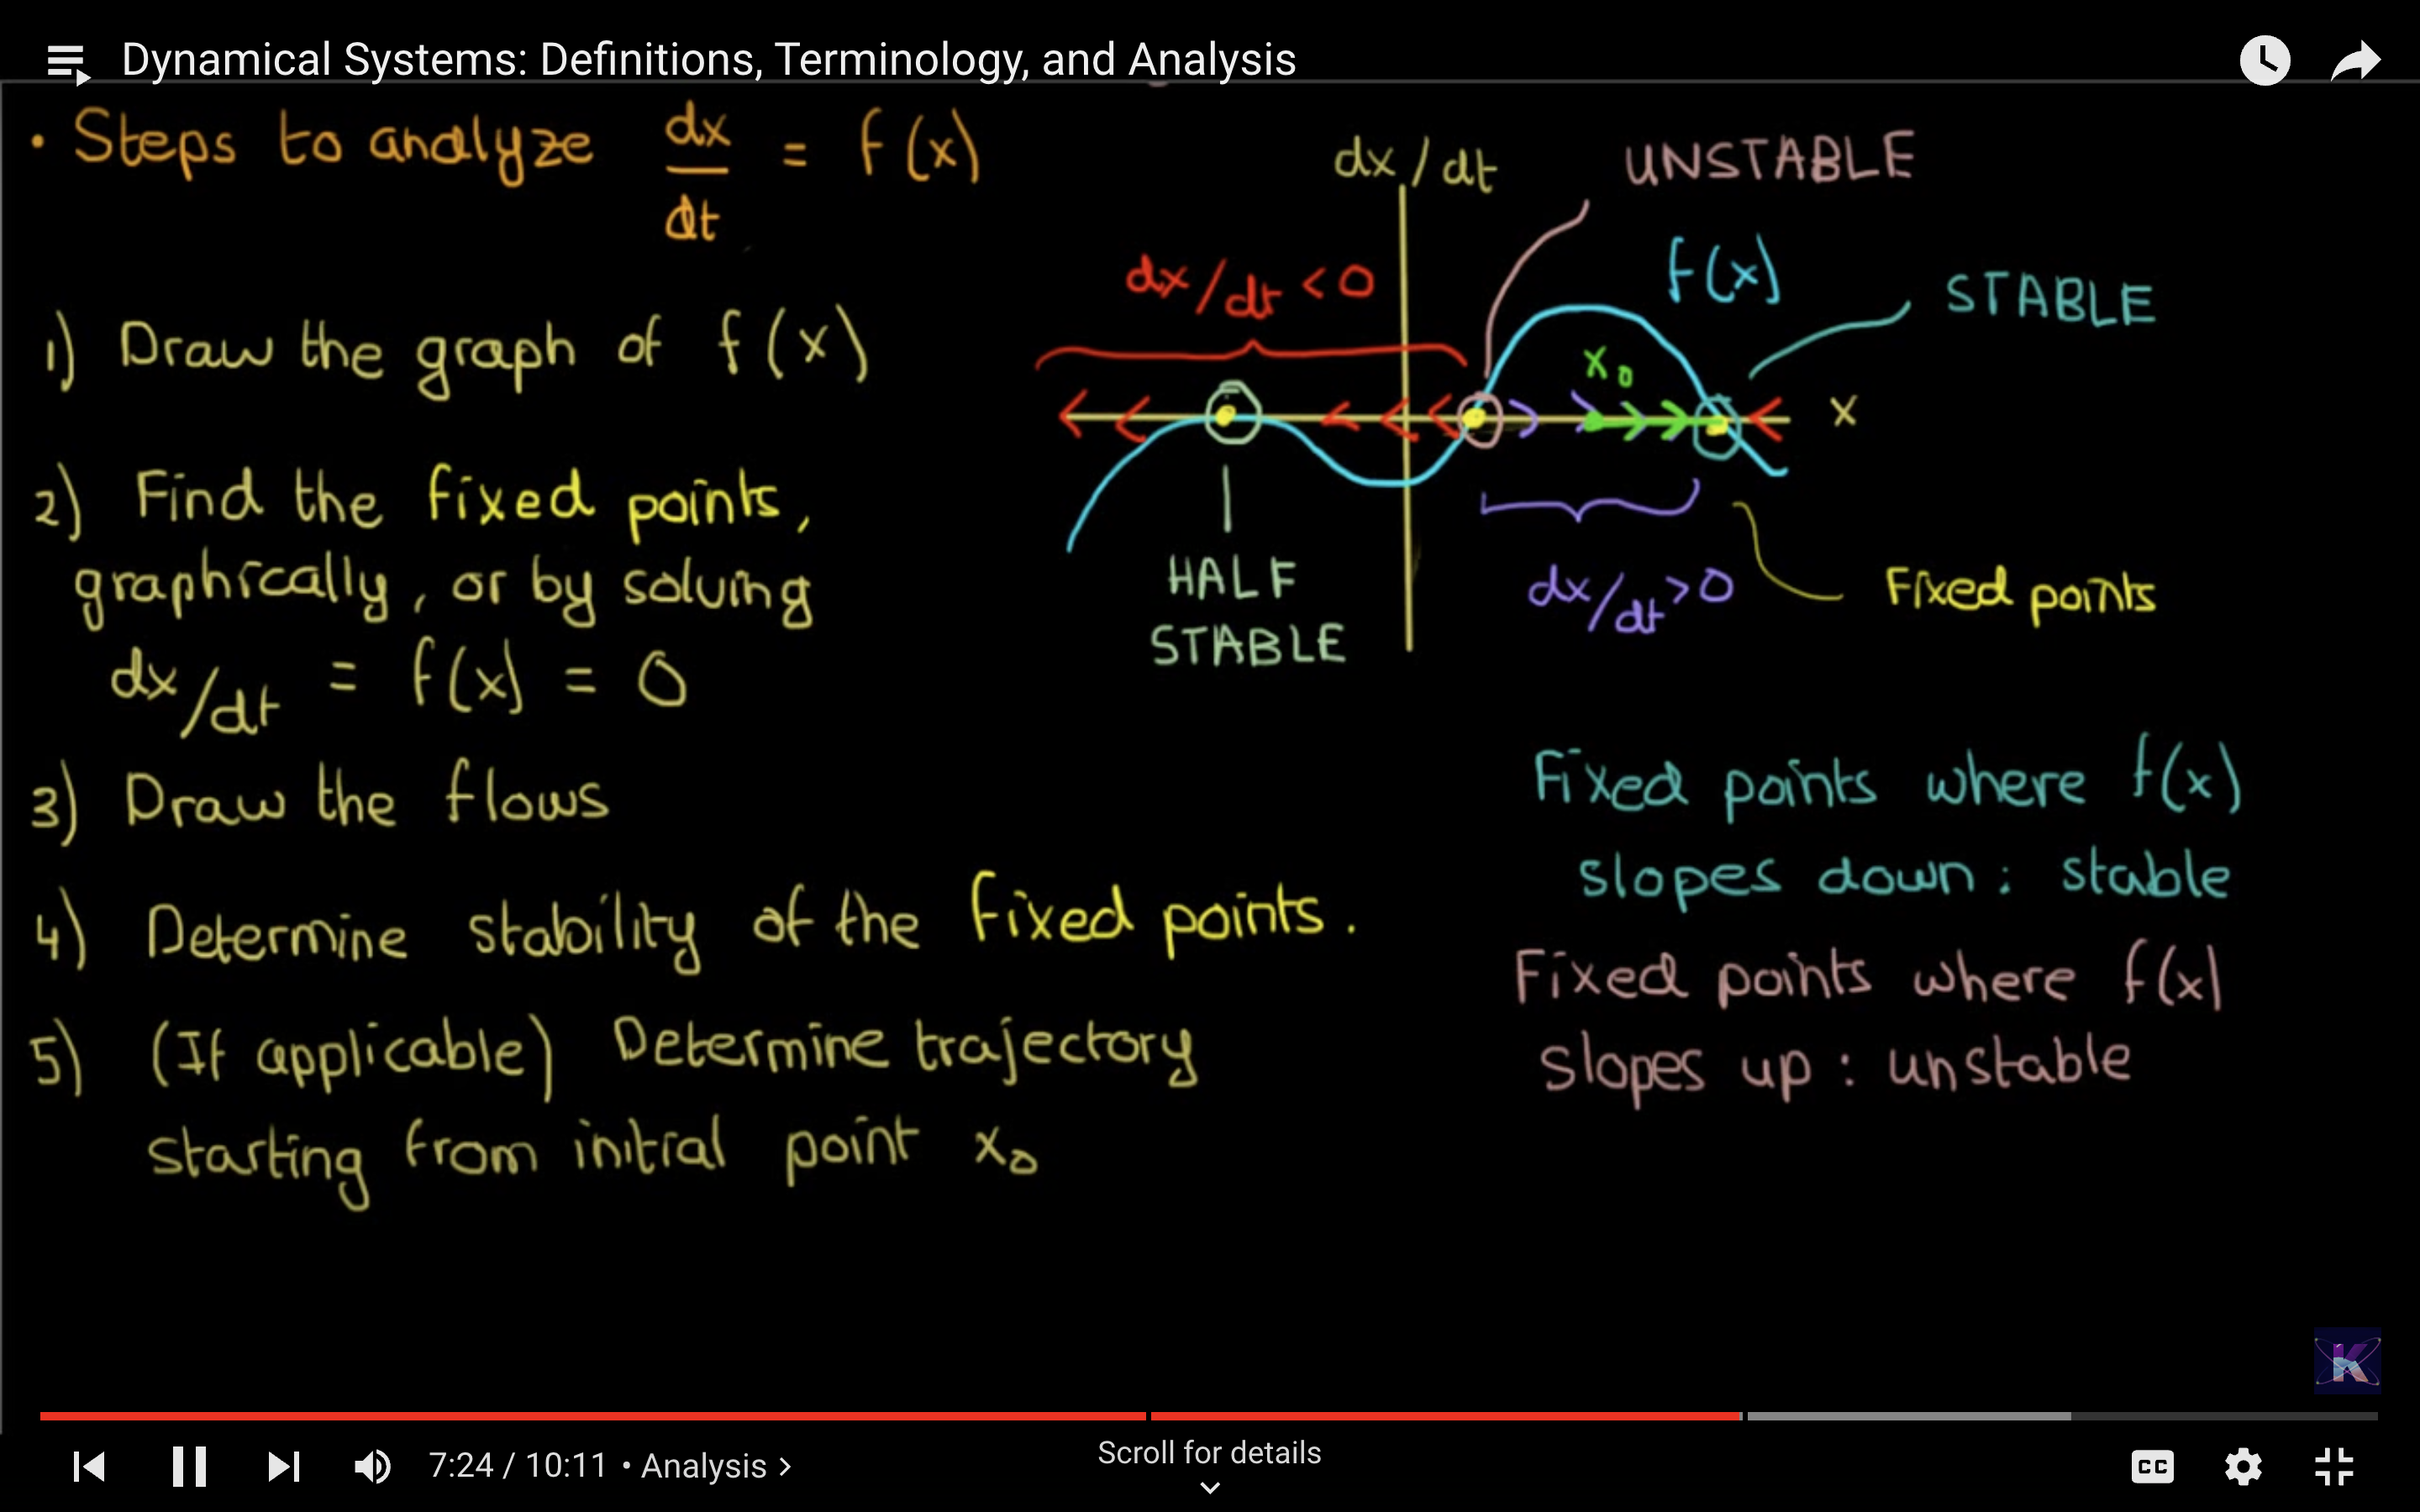 Dynamical Systems: Definitions, Terminology, and Analysis
• Steps to analyze dx/dt = f(x)
1) Draw the graph of f(x)
2) Find the fixed points,
graphically, or by solving
dx/dt = f(x) = 0
3) Draw the flows
4) Determine stability of the fixed points.
5) (If applicable) Determine trajectory
starting from initial point x₀
dx/dt
UNSTABLE
dx/dt < 0
f(x)
STABLE
x₀
x
HALF
STABLE
dx/dt > 0
Fixed points
Fixed points where f(x)
slopes down : stable
Fixed points where f(x)
slopes up : unstable
K
7:24 / 10:11 • Analysis >
Scroll for details
CC